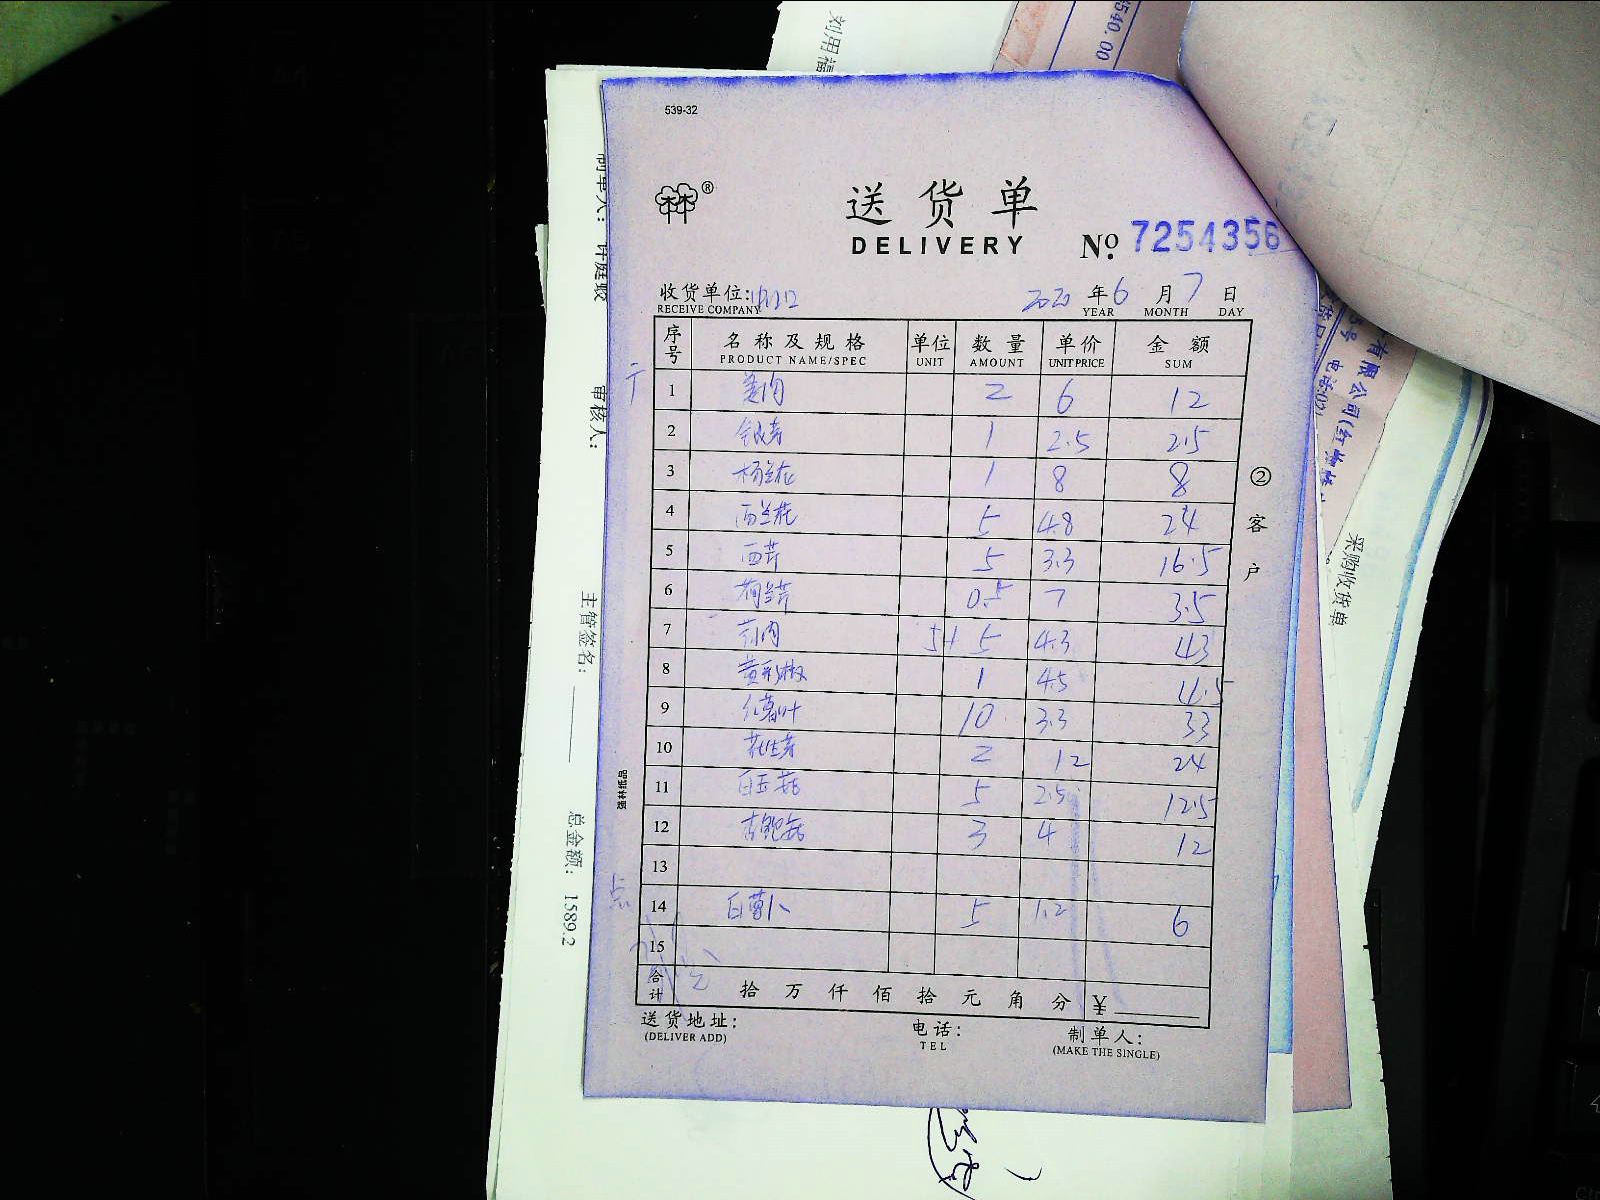 539-32
®
送货单
DELIVERY
No. 7254356
收货单位:
RECEIVE COMPANY
2020 年 6 月 7 日
YEAR MONTH DAY
序号 名称及规格 单位 数量 单价 金额
PRODUCT NAME/SPEC UNIT AMOUNT UNIT PRICE SUM
1 姜肉 2 6 12
2 1 2.5 2.5
3 杨兰花 1 8 8
4 西兰花 5 4.8 24
5 西芹 5 3.3 16.5
6 0.5 7 3.5
7 5+5 4.3 43
8 黄彩椒 1 4.5 4.5
9 红薯叶 10 3.3 33
10 花生芽 2 12 24
11 白玉菇 5 2.5 12.5
12 杏鲍菇 3 4 12
13
14 白萝卜 5 1.2 6
15
合计 拾 万 仟 佰 拾 元 角 分 ¥
送货地址:
(DELIVER ADD)
电话:
TEL
制单人:
(MAKE THE SINGLE)
② 客户
强林纸品
审核人:
主管签名:
总金额: 1589.2
刘用福
540.00
采购收货单
有限公司(红